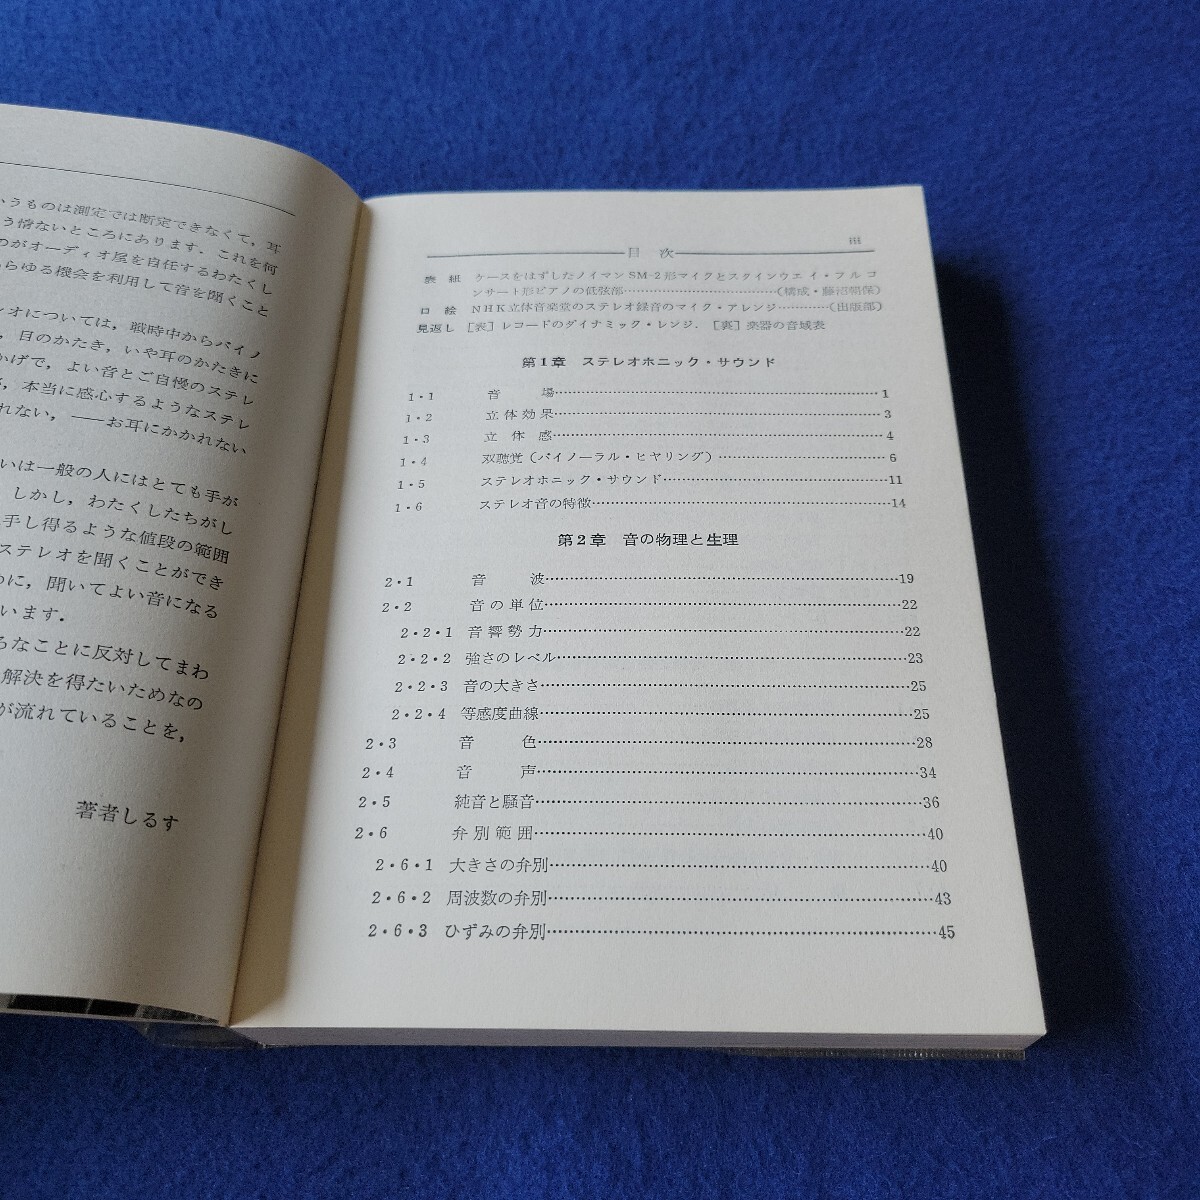 いうものは測定では断定できなくて，耳
う情ないところにあります．これを何
のがオーディオ屋を自任するわたくし
らゆる機会を利用して音を聞くこと
レオについては，戦時中からバイノ
，目のかたき，いや耳のかたきに
かげで，よい音とご自慢のステレ
，本当に感心するようなステレ
れない，——お耳にかかれない
いは一般の人にはとても手が
しかし，わたくしたちがし
手し得るような値段の範囲
ステレオを聞くことができ
に，聞いてよい音になる
います．
なことに反対してまわ
解決を得たいためなの
が流れていることを，
著者しるす
目 次 iii
表 紙 ケースをはずしたノイマン SM-2 形マイクとスタインウエイ・フル コ
ンサート形ピアノの低弦部……………………………(構成・藤沼明保)
口 絵 NHK立体音楽堂のステレオ録音のマイク・アレンジ…………(出版部)
見返し [表] レコードのダイナミック・レンジ．[裏] 楽器の音域表
第1章 ステレオホニック・サウンド
1・1 音 場……………………………1
1・2 立体効果……………………………3
1・3 立 体 感……………………………4
1・4 双聴覚（バイノーラル・ヒヤリング）……………………………6
1・5 ステレオホニック・サウンド……………………………11
1・6 ステレオ音の特徴……………………………14
第2章 音の物理と生理
2・1 音 波……………………………19
2・2 音の単位……………………………22
2・2・1 音響勢力……………………………22
2・2・2 強さのレベル……………………………23
2・2・3 音の大きさ……………………………25
2・2・4 等感度曲線……………………………25
2・3 音 色……………………………28
2・4 音 声……………………………34
2・5 純音と騒音……………………………36
2・6 弁別範囲……………………………40
2・6・1 大きさの弁別……………………………40
2・6・2 周波数の弁別……………………………43
2・6・3 ひずみの弁別……………………………45